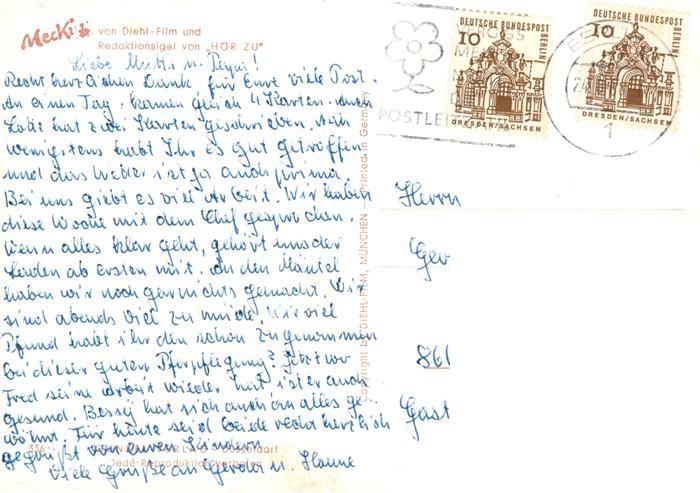 Mecki von Diehl-Film und
Redaktionsigel von „HÖR ZU"
Liebe Mutti u.
Recht herzlichen Dank für Eure viele Post.
An einen Tag kamen gleich 4 Karten. Auch
hat zwei Karten geschrieben. Na
wenigstens habt Ihr es gut getroffen
und das Wetter ist ja auch prima.
Bei uns giebt es viel Arbeit. Wir haben
diese Woche mit dem Chef gesprochen.
Wenn alles klar geht, gehört uns der
Laden ab ersten mit. An den Mäntel
haben wir noch garnichts gemacht. Wir
sind abends viel zu müde. Wie viel
Pfund habt ihr den schon zugenommen
bei dieser guten Pflege? Jetzt wo
Fred seine Arbeit wieder hat ist er auch
gesund. hat sich auch an alles ge
wöhnt. Für heute seid beide recht herzlich
gegrüßt von Euren Kindern
Viele Grüße an u. Hanne
Copyright by DIEHL-FILM, MÜNCHEN Printed in Germany
336
Düsseldorf
Jede Reproduktion verboten
POSTLEIT
10
DEUTSCHE BUNDESPOST
BERLIN
DRESDEN/SACHSEN
10
DEUTSCHE BUNDESPOST
BERLIN
DRESDEN/SACHSEN
1
Herrn
Geo
861
Gast